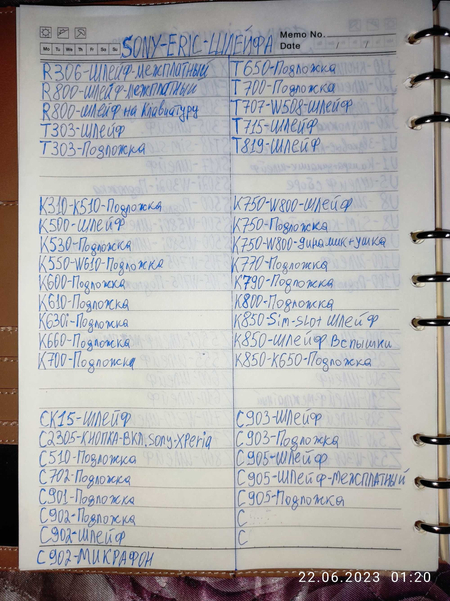 SONY-ERIC-ШЛЕЙФА
Memo No.
Date
Mo Tu We Th Fr Sa Su
R306-ШЛЕЙФ-межплатный
R800-ШЛЕЙФ-межплатный
R800-ШЛЕЙФ на Клавиатуру
T303-ШЛЕЙФ
T303-Подложка
T650-Подложка
T700-Подложка
T707-W508-ШЛЕЙФ
T715-ШЛЕЙФ
T819-ШЛЕЙФ
K310-K510-Подложка
K500-ШЛЕЙФ
K530-Подложка
K550-W610-Подложка
K600-Подложка
K610-Подложка
K630i-Подложка
K660-Подложка
K700-Подложка
K750-W800-ШЛЕЙФ
K750-Подложка
K750-W800-динамик+ушка
K770-Подложка
K790-Подложка
K800-Подложка
K850-Sim-Slot ШЛЕЙФ
K850-ШЛЕЙФ Вспышки
K850-K650-Подложка
CK15-ШЛЕЙФ
C2305-КНОПКА-ВКЛ, Sony-Xperia
C510-Подложка
C702-Подложка
C901-Подложка
C902-Подложка
C902-ШЛЕЙФ
C902-МИКРАФОН
C903-ШЛЕЙФ
C903-Подложка
C905-ШЛЕЙФ
C905-ШЛЕЙФ-МЕЖСПЛАТНЫЙ
C905-Подложка
C
C
22.06.2023 01:20